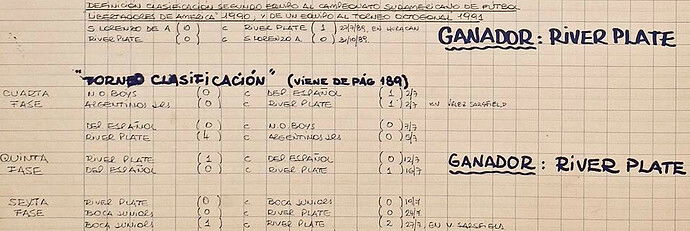 DEFINICION CLASIFICACION SEGUNDO EQUIPO AL CAMPEONATO SUDAMERICANO DE FUTBOL
LIBERTADORES DE AMERICA" 1990, Y DE UN EQUIPO AL TORNEO OCTOGONAL 1991
S. LORENZO DE A. (0) C RIVER PLATE (1) 27/7/89, EN HURACAN
RIVER PLATE (0) C S. LORENZO A. (0) 30/10/89.
GANADOR: RiVER PLATE
"TORNEO CLASIFICACIÓN" (VIENE DE PÁG 189)
CUARTA FASE N.O. BOYS (0) C DEP. ESPAÑOL (1) 2/7
ARGENTINOS JRS (0) C RIVER PLATE (1) 2/7 EN VELEZ SARSFIELD
DEP. ESPAÑOL (0) C N.O. BOYS (0) 9/7
RIVER PLATE (4) C ARGENTINOS JRS (0) 5/7
QUINTA FASE RIVER PLATE (1) C DEP. ESPAÑOL (0) 12/7
DEP. ESPAÑOL (0) C RIVER PLATE (1) 16/7
GANADOR: RiVER PLATE
SEXTA FASE RIVER PLATE (0) C BOCA JUNIORS (0) 19/7
BOCA JUNIORS (0) C RIVER PLATE (0) 24/7
BOCA JUNIORS (1) C RIVER PLATE (2) 27/7, EN V. SARSFIELD